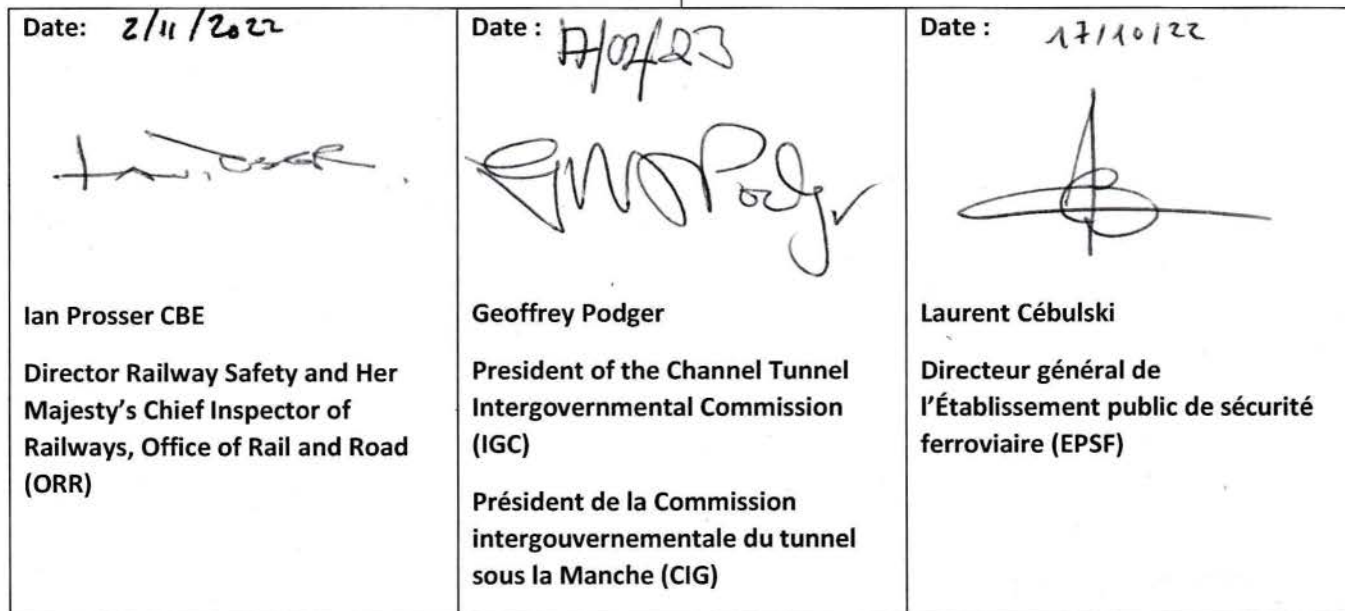 Date: 2/11/2022
Ian Prosser CBE
Director Railway Safety and Her
Majesty's Chief Inspector of
Railways, Office of Rail and Road
(ORR)
Date : 17/02/23
GMPodger
Geoffrey Podger
President of the Channel Tunnel
Intergovernmental Commission
(IGC)
Président de la Commission
intergouvernementale du tunnel
sous la Manche (CIG)
Date : 17/10/22
Laurent Cébulski
Directeur général de
l'Établissement public de sécurité
ferroviaire (EPSF)